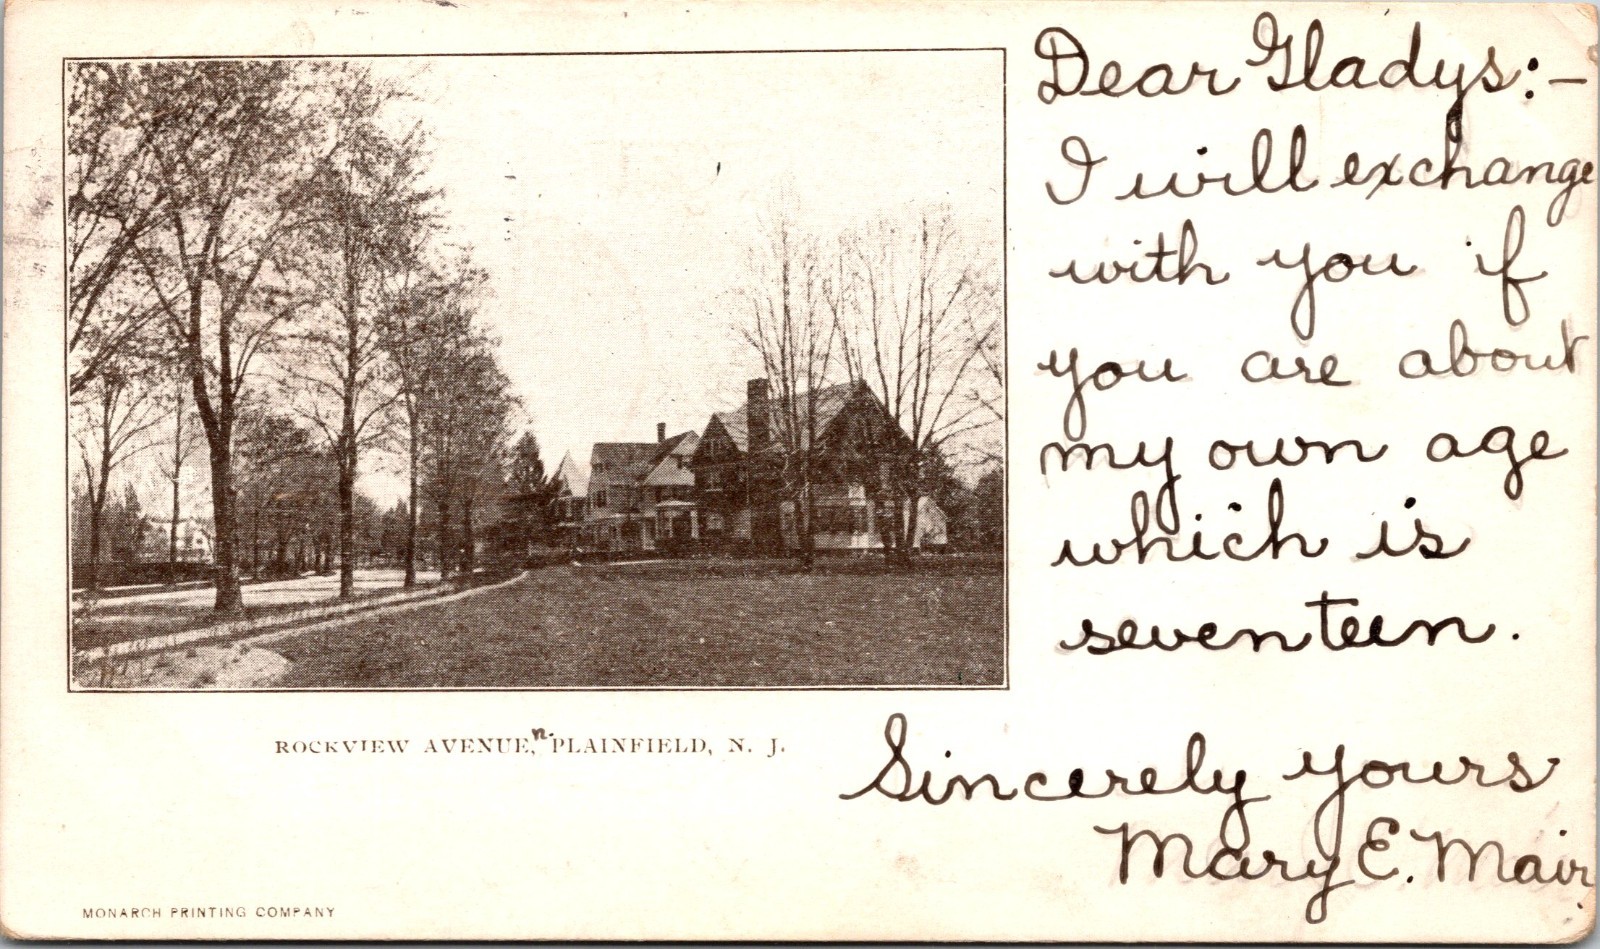 Dear Gladys:—
I will exchange
with you if
you are about
my own age
which is
seventeen.
Sincerely yours
Mary E. Mair.
ROCKVIEW AVENUE, n. PLAINFIELD, N. J.
MONARCH PRINTING COMPANY